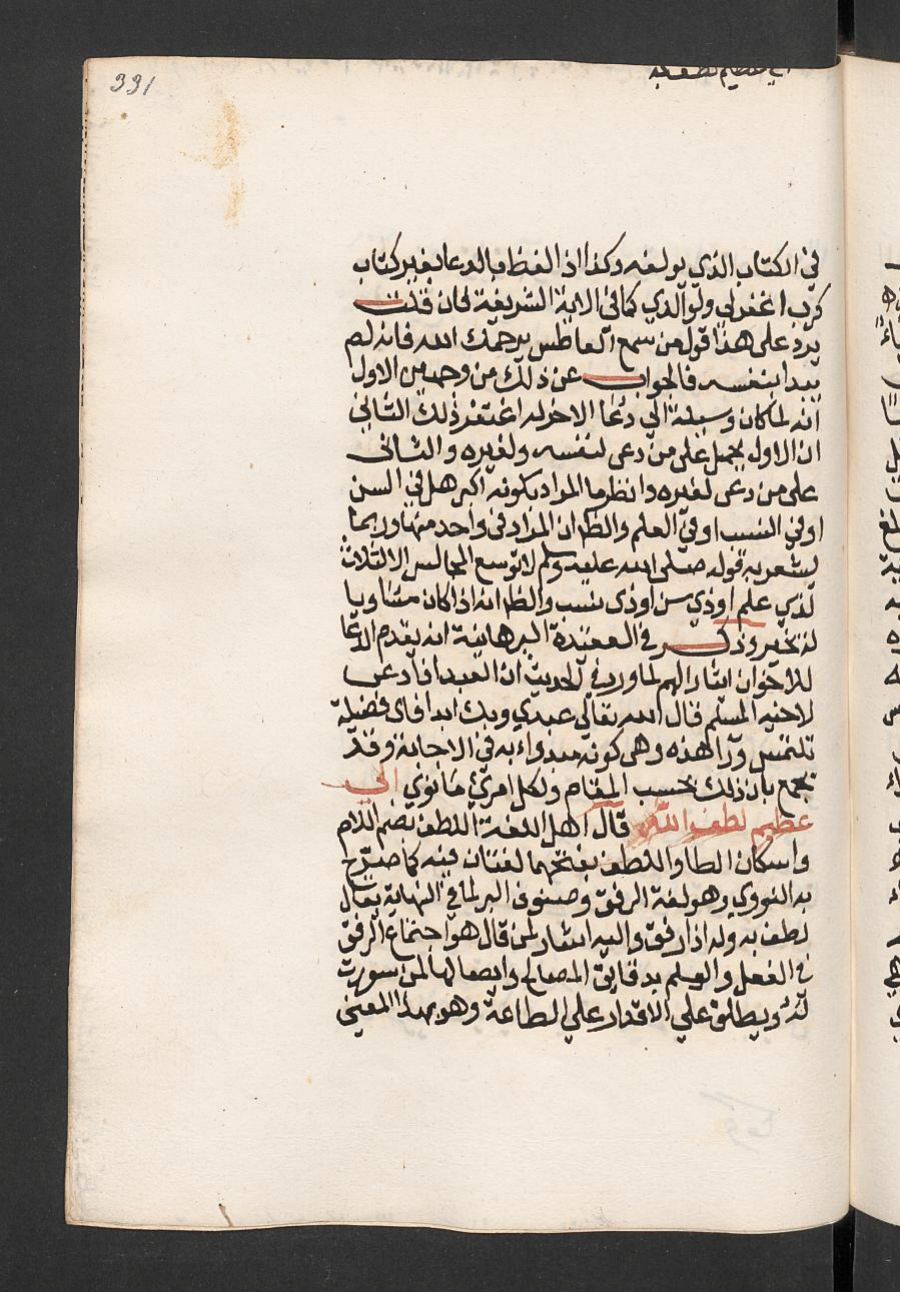 331
في الكتاب الذي يولفه وكذا اذا لفظ بالدعا بغير كتاب
كرب اغفر لي ولوالدي كما في الاية الشريفة فان قلت
يرد على هذا قول من سمع العاطس يرحمك الله فانه لم
يبدا بنفسه فالجواب عن ذلك من وجهين الاول
انه لما كان وسيلة الي دعا الاخر له اغتفر ذلك الثاني
ان الاول يحمل على من دعى لنفسه ولغيره والثاني
على من دعى لغيره وانظر ما المراد بكونه اكبر هل في السن
او في النسب او في العلم والظ ان المراد في واحد منها وربما
يشعر به قوله صلى الله عليه وسلم لا توسع المجالس الا لثلاث
لذي علم اوذي سن اوذى نسب والظ انه اذا كان متساويا
له تخير وذكر في العقيدة البرهانية انه يقدم الدعا
للاخوان ايثارا لهم لما ورد في الحديث ان العبد اذا دعى
لاخيه المسلم قال الله تعالى عبدي وبك ابدا فاى فضيلة
تلتمس ورا هذه وهي كونه مبدواء به في الاجابة وقد
يجمع بان ذلك بحسب المقام ولكل امرئ ما نوي الي
عظيم لطف الله قال اهل اللغة اللطف بضم اللام
واسكان الطا واللطف بفتحهما لغتان فيه كما صرح
به النووي وهو لغة الرفق وصنوف البر لما في النهاية يقال
لطف به وله اذا رفق واليه اشار لمن قال هو اجتماع الرفق
في الفعل والعلم بدقايق المصالح وايصالها لمن
له ويطلق علي الاقدار علي الطاعة وهو بهذا المعني